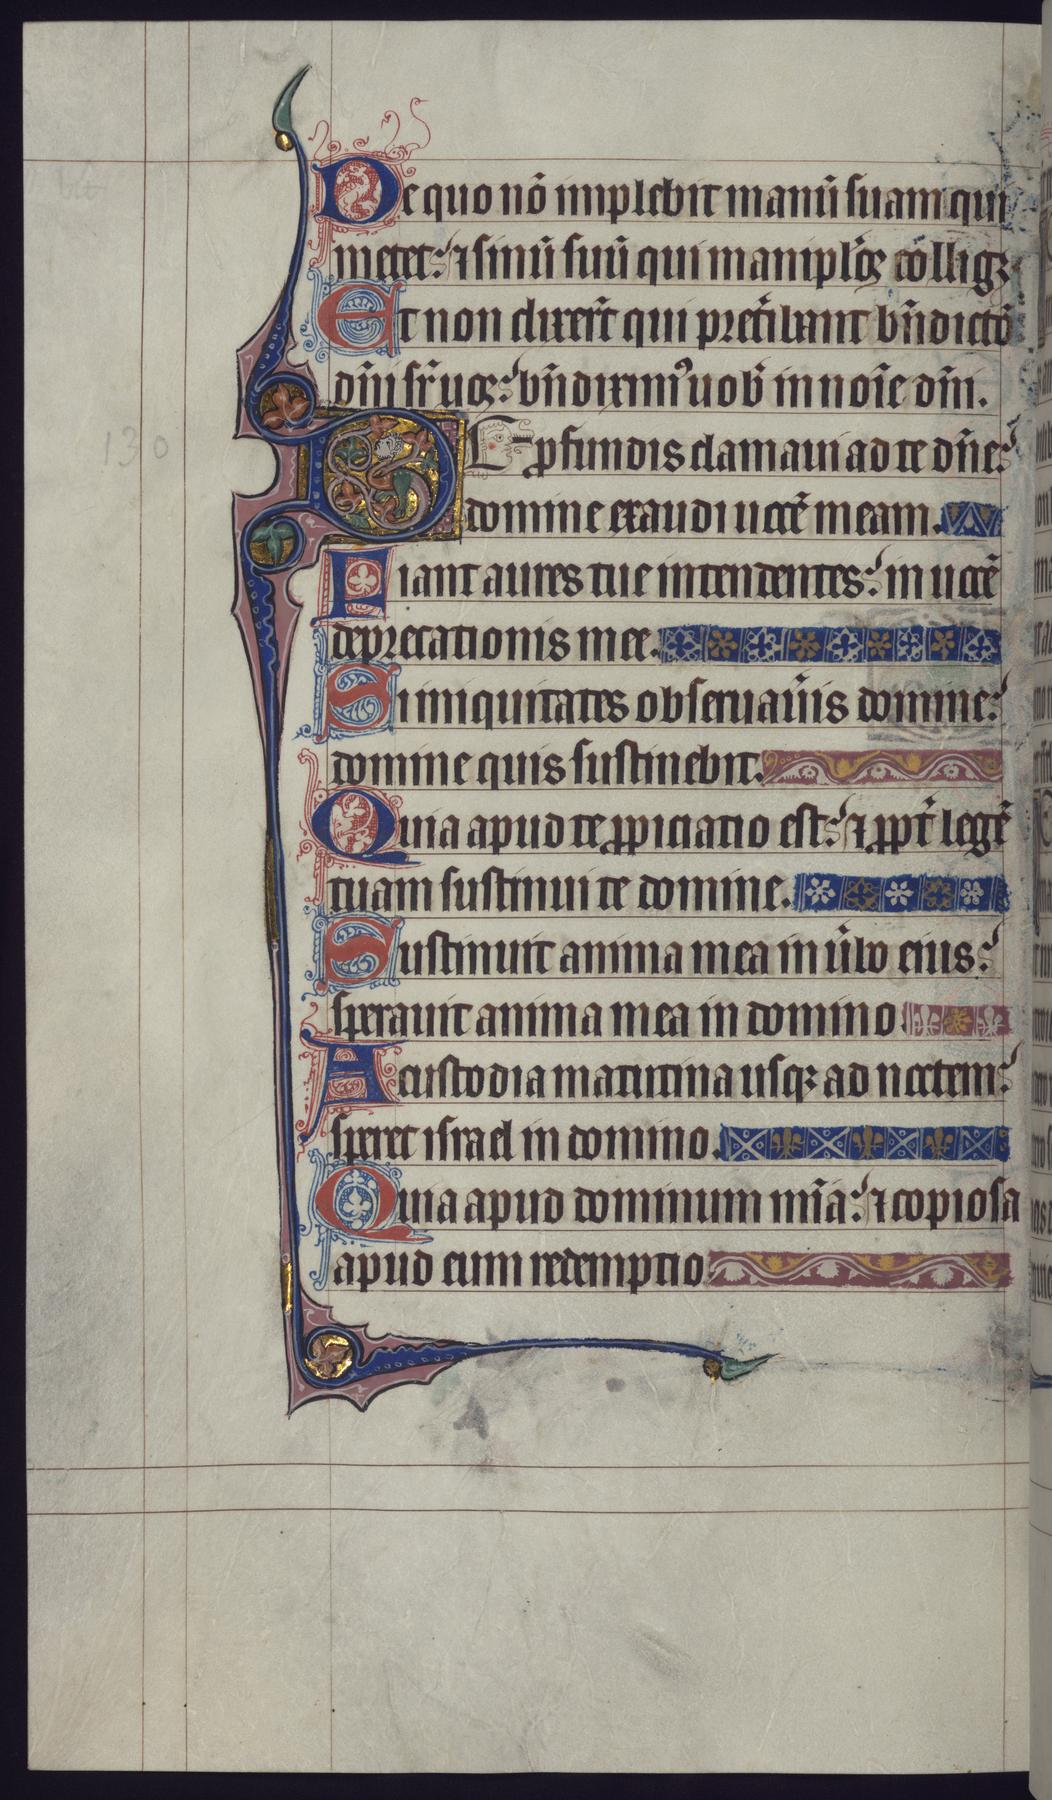 De quo nō implebit manū suam qui
metet: ⁊ sinū suū qui manipl'os colligꝫ
Et non dixer̄t qui pret̄ibant bn̄dictō
dn̄i sr̄ uos: bn̄dixim᷒ uob̄ in noīe dn̄i.
DE ꝓfundis clamaui ad te dn̄e:
domine exaudi uocē meam.
Fiant aures tue intendentes: in uocē
deprecationis mee.
Si iniquitates obseruau̾is domine:
domine quis sustinebit.
Quia apud te ꝓpiciatio est: ⁊ ꝓpt̄ legē
tuam sustinui te domine.
Sustinuit anima mea in u̾bo eius:
sperauit anima mea in domino
A custodia matutina usqꝫ ad noctem:
speret israel in domino.
Quia apud dominum mīa: ⁊ copiosa
apud eum redemptio
130